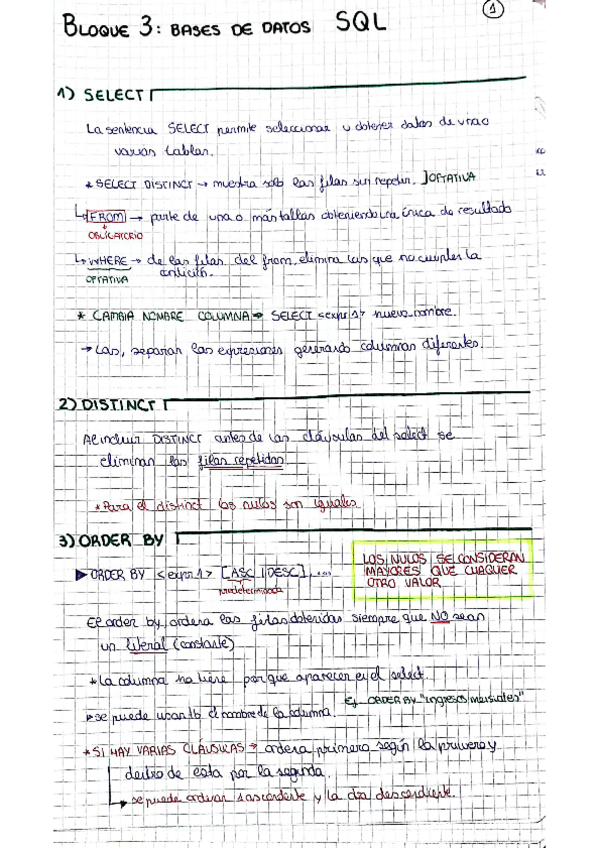 1
BLOQUE 3: BASES DE DATOS SQL
1) SELECT
La sentencia SELECT permite seleccionar u obtener datos de una o
varias tablas.
* SELECT DISTINCT → muestra solo las filas sin repetir. ] OPTATIVA
FROM → parte de una o más tablas obteniendo una única de resultado
OBLIGATORIO
WHERE → de las filas del from, elimina las que no cumplen la
OPTATIVA condición.
* CAMBIA NOMBRE COLUMNA → SELECT <expr1> nuevo_nombre.
→ Las , separan las expresiones generando columnas diferentes.
2) DISTINCT
Al incluir DISTINCT antes de las cláusulas del select se
eliminan las filas repetidas
* Para el distinct los nulos son iguales
3) ORDER BY
LOS NULOS SE CONSIDERAN
MAYORES QUE CUALQUER
OTRO VALOR
ORDER BY <expr1> [ASC | DESC], ...
predeterminado
El order by, ordera las filas obtenidas siempre que NO sean
un literal (constante)
* La columna no tiene por que aparecer en el select.
Ej. ORDER BY "ingresos mensuales"
se puede usar tb el nombre de la columna.
* SI HAY VARIAS CLÁUSULAS → ordera primero según la primera y
dentro de esta por la segunda.
se puede ordenar 1 ascendente y la otra descendiente.